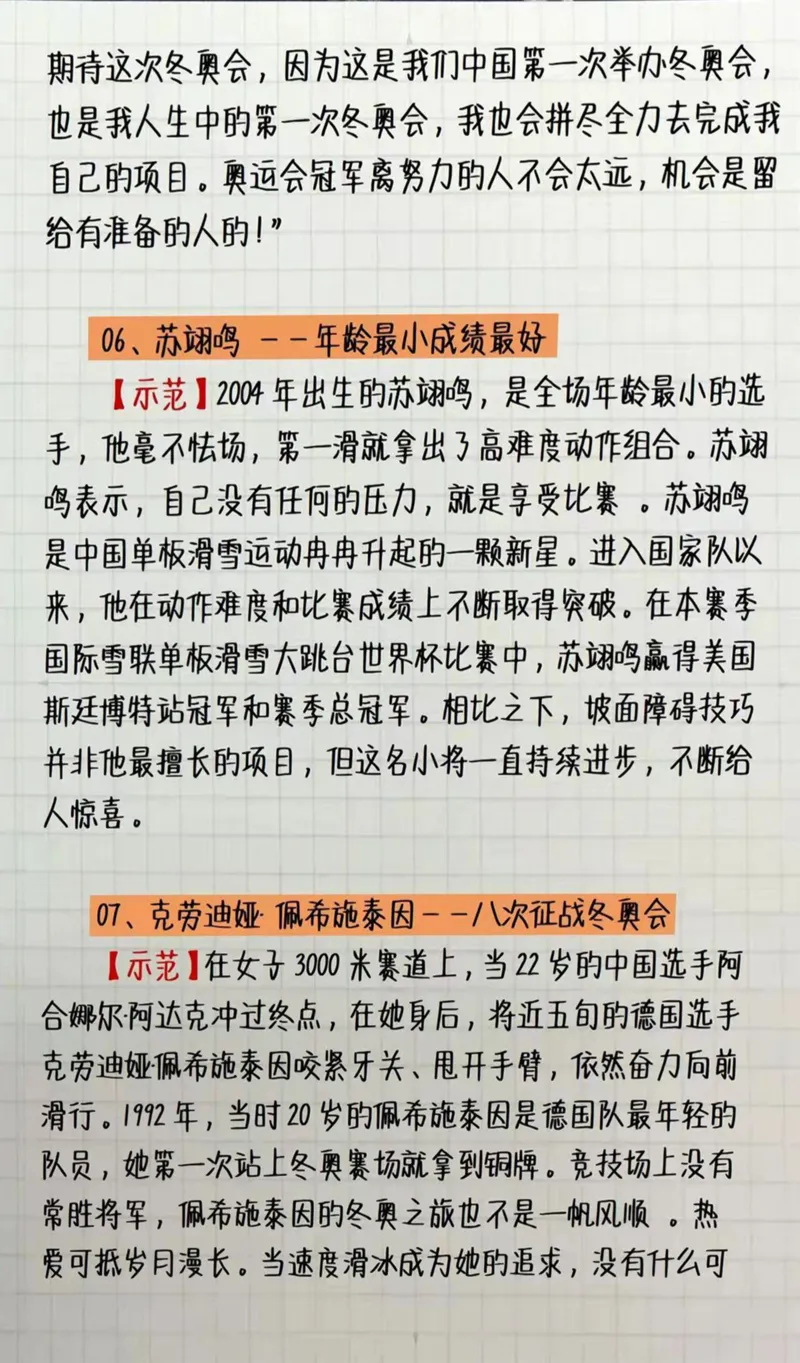 期待这次冬奥会，因为这是我们中国第一次举办冬奥会，
也是我人生中的第一次冬奥会，我也会拼尽全力去完成我
自己的项目。奥运会冠军离努力的人不会太远，机会是留
给有准备的人的！”
06、苏翊鸣 －－年龄最小成绩最好
【示范】2004 年出生的苏翊鸣，是全场年龄最小的选
手，他毫不怯场，第一滑就拿出了高难度动作组合。苏翊
鸣表示，自己没有任何的压力，就是享受比赛 。苏翊鸣
是中国单板滑雪运动冉冉升起的一颗新星。进入国家队以
来，他在动作难度和比赛成绩上不断取得突破。在本赛季
国际雪联单板滑雪大跳台世界杯比赛中，苏翊鸣赢得美国
斯廷博特站冠军和赛季总冠军。相比之下，坡面障碍技巧
并非他最擅长的项目，但这名小将一直持续进步，不断给
人惊喜。
07、克劳迪娅· 佩希施泰因－－八次征战冬奥会
【示范】在女子 3000 米赛道上，当 22 岁的中国选手阿
合娜尔·阿达克冲过终点，在她身后，将近五旬的德国选手
克劳迪娅·佩希施泰因咬紧牙关、甩开手臂，依然奋力向前
滑行。1992 年，当时 20 岁的佩希施泰因是德国队最年轻的
队员，她第一次站上冬奥赛场就拿到铜牌。竞技场上没有
常胜将军，佩希施泰因的冬奥之旅也不是一帆风顺 。热
爱可抵岁月漫长。当速度滑冰成为她的追求，没有什么可